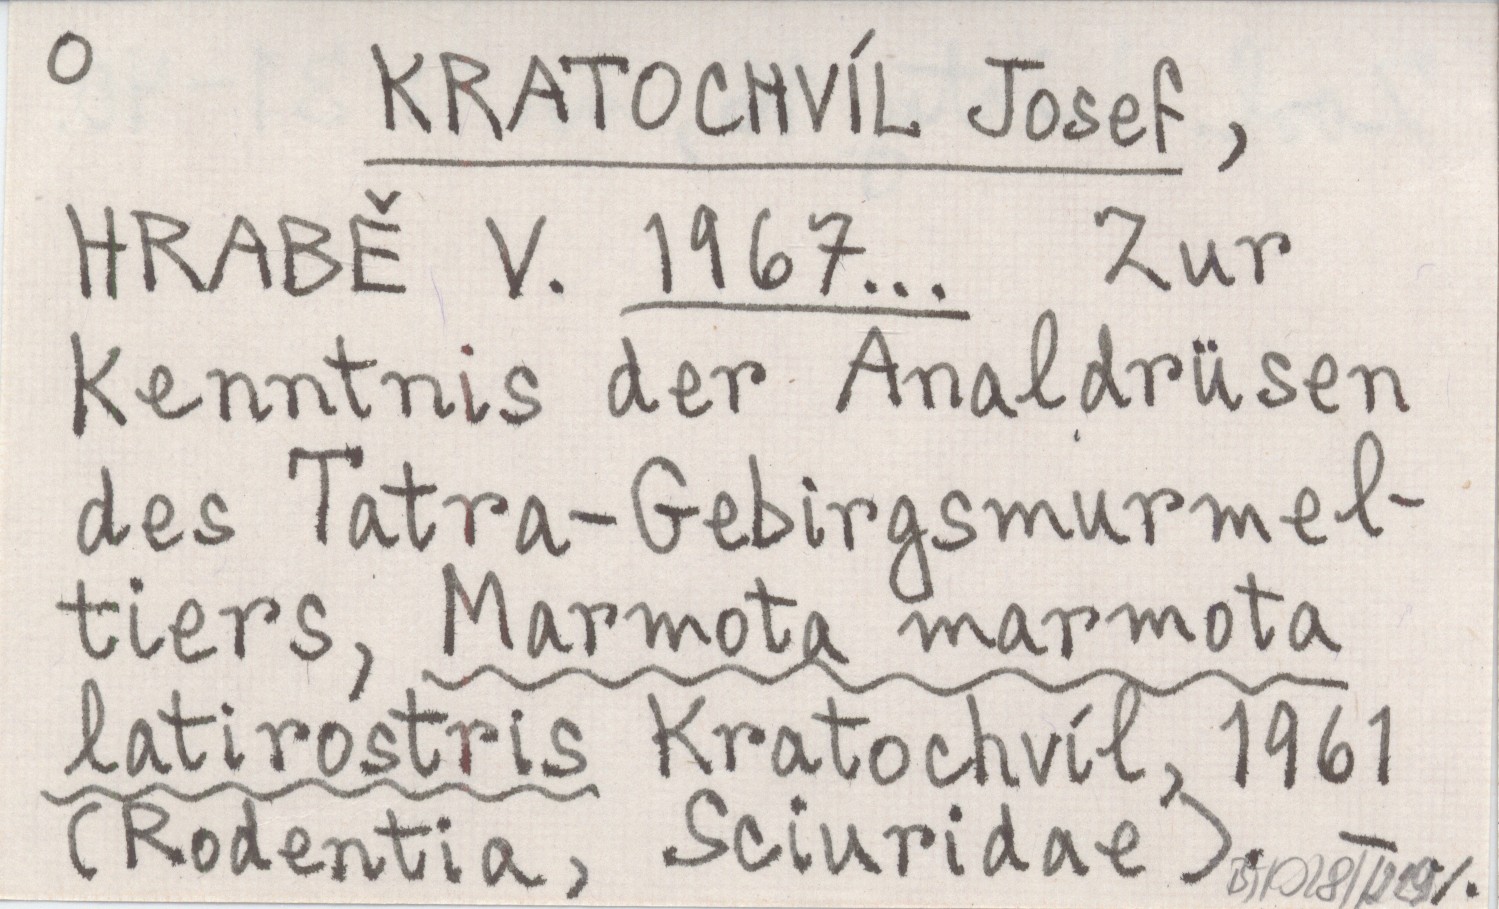 O KRATOCHVÍL Josef,
HRABĚ V. 1967... Zur
Kenntnis der Analdrüsen
des Tatra-Gebirgsmurmel-
tiers, Marmota marmota
latirostris Kratochvíl, 1961
(Rodentia, Sciuridae). — ./.